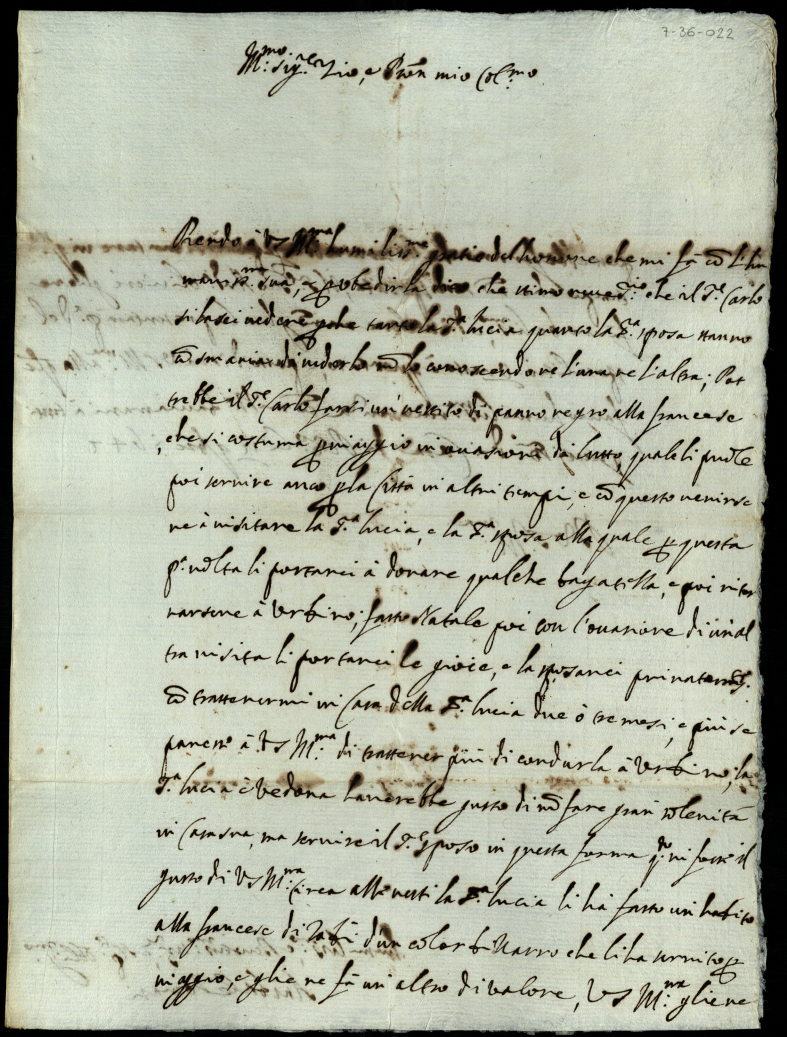 7-36-022
Ill:mo Sig:re Zio, e Pron mio Col:mo
Rendo à VS Ill:ma humiliss:me gratie del honore che mi fà cō l'hu
maniss:ma sua, ꝑ obedirla dico che stimo necess:rio che il S:r Carlo
si lasci vedere, che tanto la S:ra Lucia quanto la S:ra sposa stanno
cō smania di vederlo nō lo conoscendo ne l'una ne l'altra; Pot
trebbe il S:r Carlo farsi un vestito di panno negro alla francese
, che si costuma ꝑ viaggio in occasione di lutto, quale li puole
poi servire anco ꝑ la Città in altri tempi, e cō questo venirse
ne à visitare la S:ra Lucia, e la S:ra sposa alla quale ꝑ questa
p:a volta li portarei à donare qualche bagatella, e poi ritor
narsene à Urbino; fatto Natale poi con l'occasione di un'al
tra visita li portarei le gioie, e la sposarei privatam:te
cō trattenermi in Casa della S:ra Lucia due ò tre mesi, e più se
paresse à VS Ill:ma di trattener più di condurla à Urbino, la
S:ra Lucia è Vedova haverebbe gusto di nō fare gran solenità
in Casa sua, ma servire il S:r sposo in questa forma q:do vi fosse il
gusto di VS Ill:ma Circa alle vesti la S:ra Lucia li hà fatto un habito
alla francese di Tabì d'un color bizzarro che li ha servito ꝑ
viaggio, e glie ne fà un altro di valore, VS Ill:ma glie ne